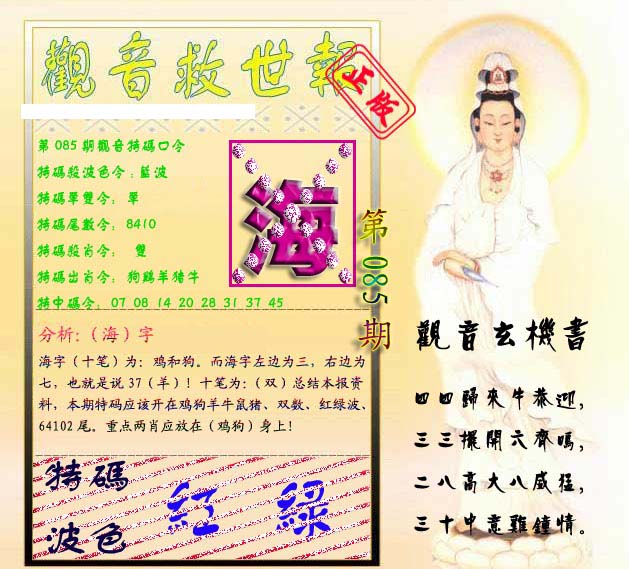 觀音救世報
正版
第085期觀音特碼口令
特碼殺波色令:藍波
特碼單雙令: 單
特碼尾數令: 8410
特碼殺肖令: 雙
特碼出肖令: 狗鷄羊猪牛
特中碼令: 07 08 14 20 28 31 37 45
海
第085期
分析:（海）字
海字（十笔）为：鸡和狗。而海字左边为三，右边为
七，也就是说37（羊）！十笔为：（双）总结本报资
料，本期特码应该开在鸡狗羊牛鼠猪、双数、红绿波、
64102尾。重点两肖应放在（鸡狗）身上！
特碼
波色
紅 綠
觀音玄機書
四四歸來牛恭迎，
三三擺開六齊鳴，
二八高大八威猛，
三十中意難鐘情。